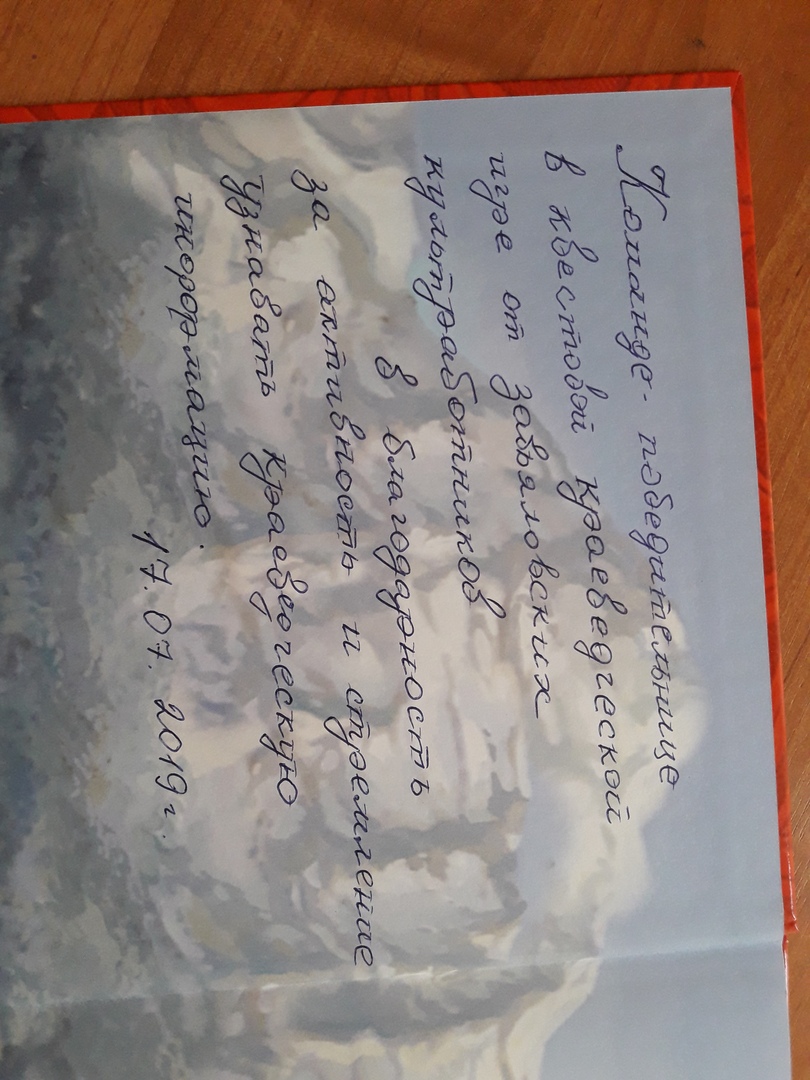 Команде-победительнице
в квестовой краеведческой
игре от завьяловских
культработников
в благодарность
за активность и стремление
узнавать краеведческую
информацию.
17.07.2019г.